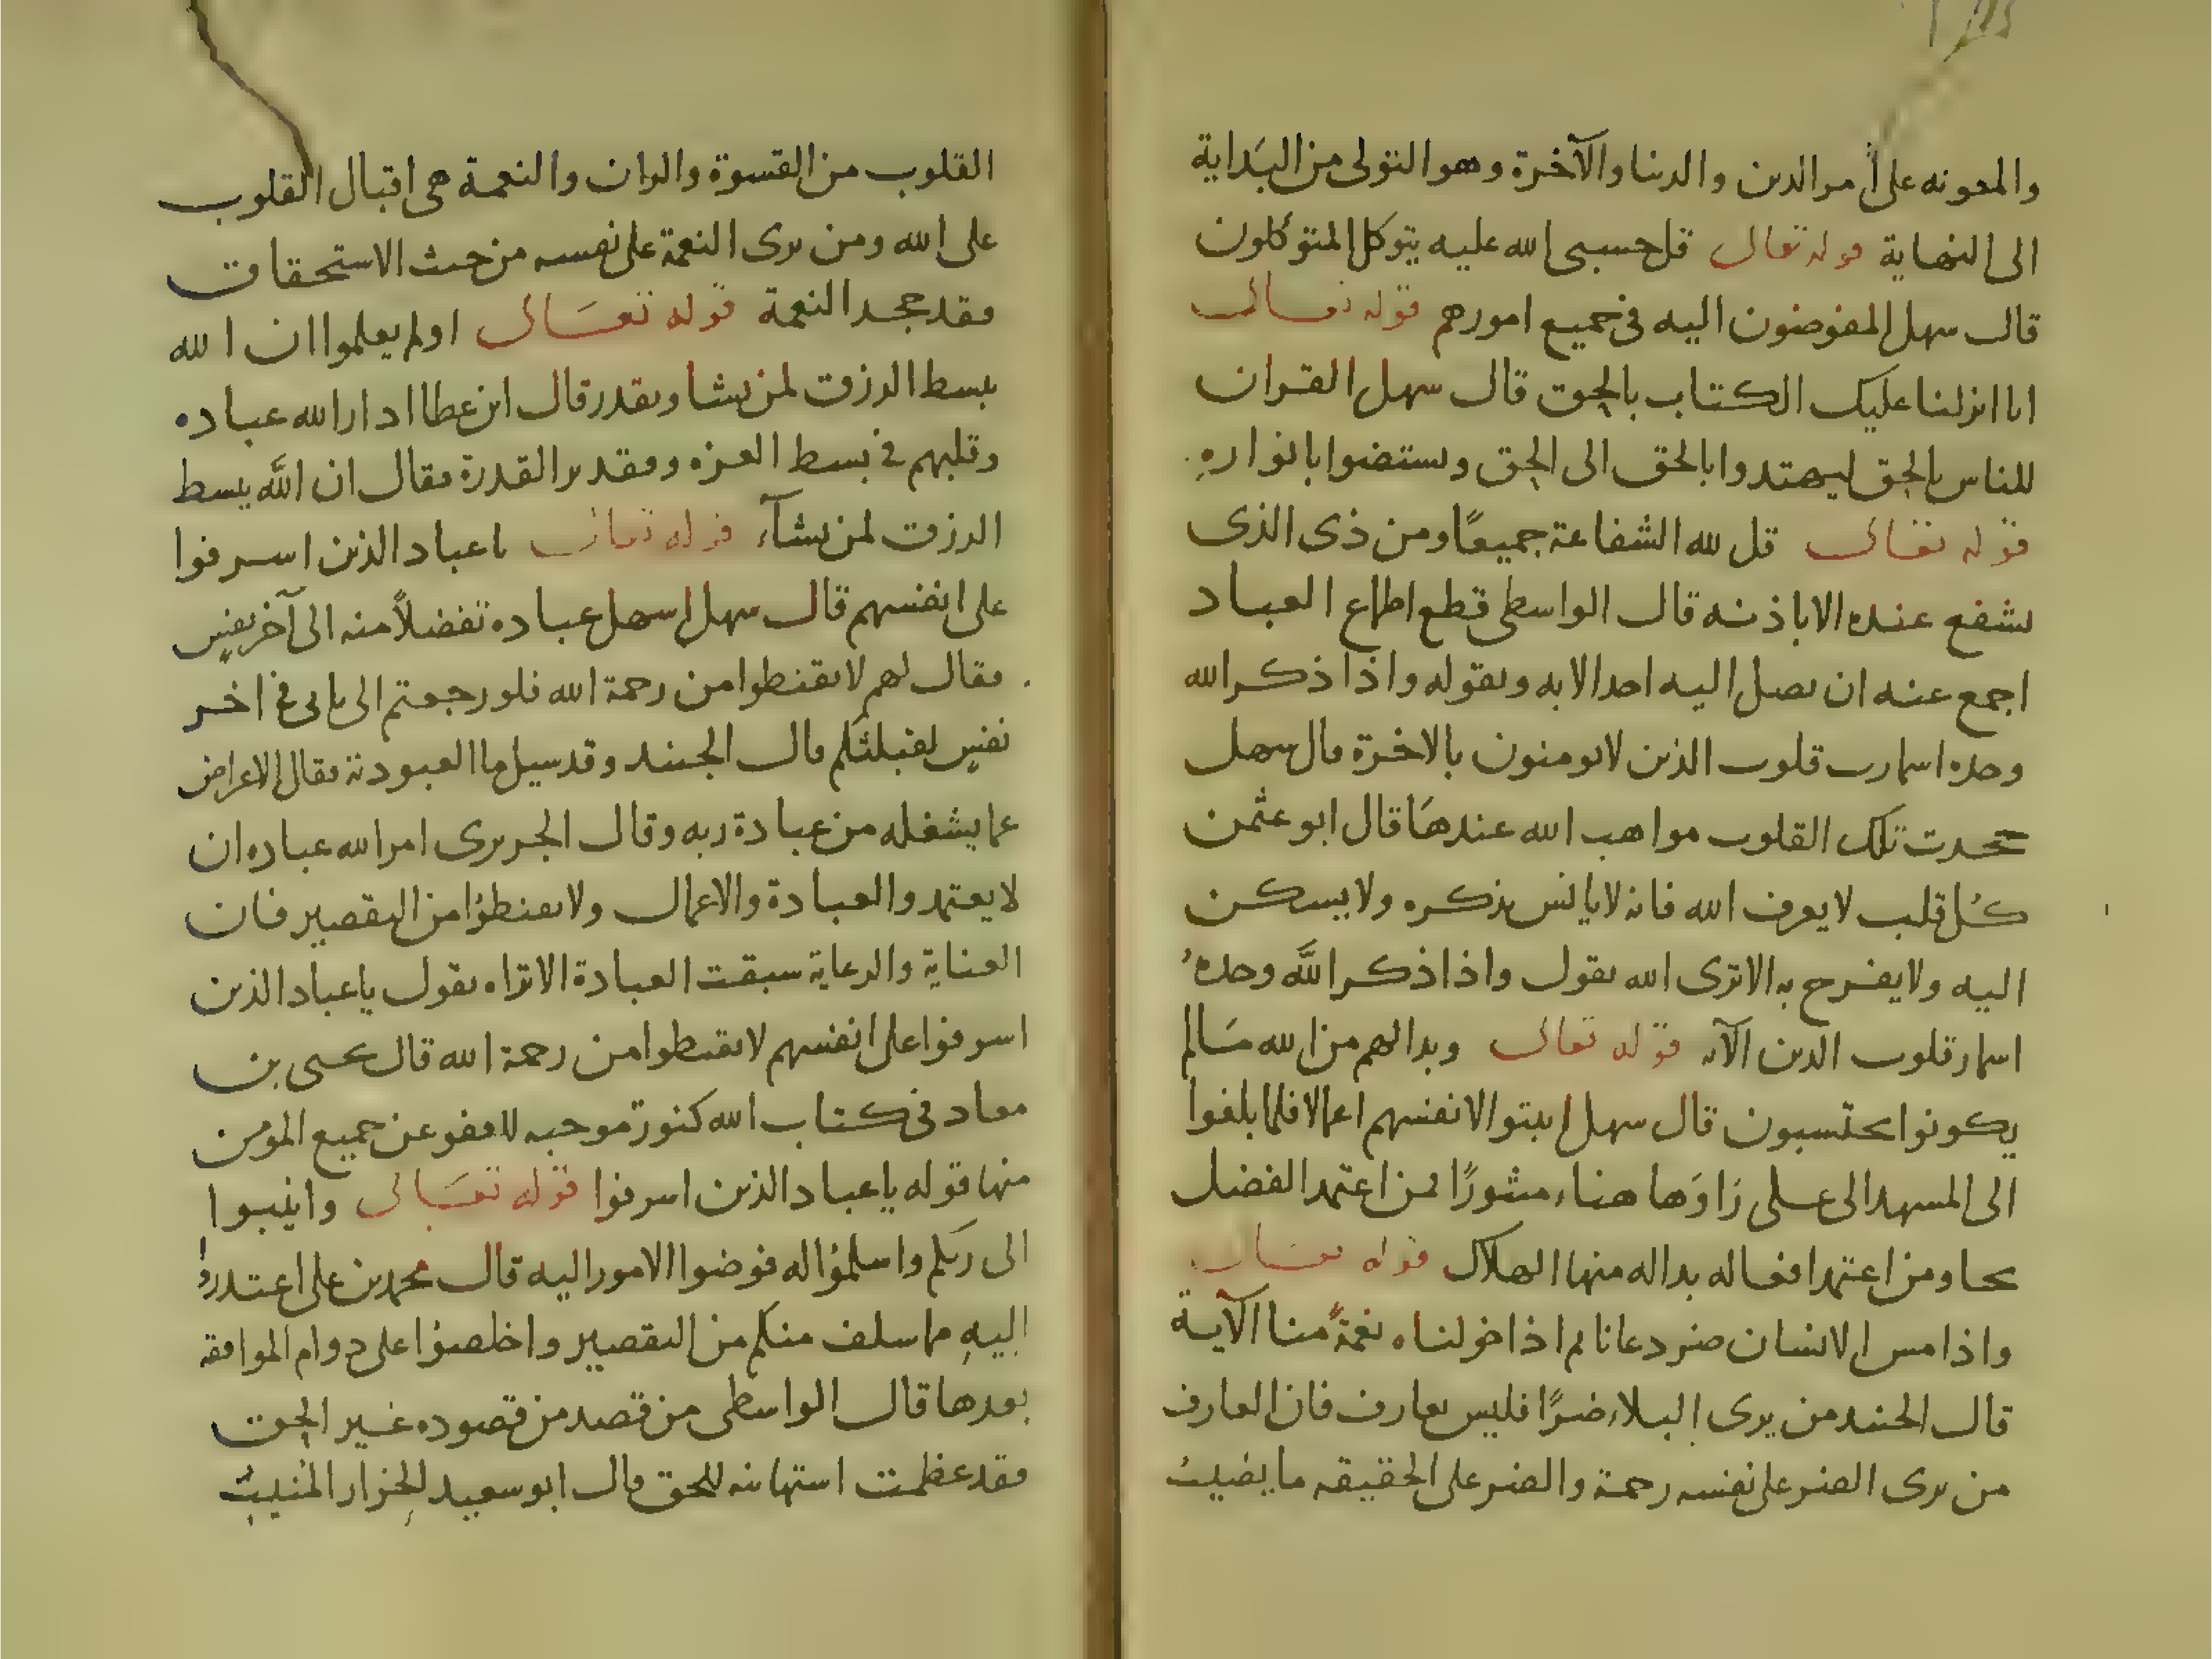 والمعونه على أمر الدين والدنيا والآخرة وهو التولى من البداية
الى النهاية قوله تعالى قل حسبى الله عليه يتوكل المتوكلون
قال سهل المفوضون اليه فى جميع امورهم قوله تعالى
انا انزلنا عليك الكتاب بالحق قال سهل القران
للناس بالحق ليهتدوا بالحق الى الحق ويستضوا بانواره
قوله تعالى قل لله الشفاعة جميعًا ومن ذى الذى
يشفع عنده الا باذنه قال الواسطى قطع اطماع العباد
اجمع عنه ان يصل اليه احد الا به وبقوله واذا ذكر الله
وحده اشمازت قلوب الذين لا يومنون بالاخرة قال سهل
جحدت تلك القلوب مواهب الله عندها قال ابو عثمن
كل قلب لا يعرف الله فانه لا يانس بذكره ولا يسكن
اليه ولا يفرح به الا ترى الله يقول واذا ذكر الله وحده
اشمازت قلوب الذين الآيه قوله تعالى وبدا لهم من الله مالم
يكونوا يحتسبون قال سهل اثبتوا لانفسهم اعمالا فلما بلغوا
الى المشهد الاعلى رَاوَها هباء منثورًا فمن اعتمد الفضل
نجا ومن اعتمد افعاله بدا له منها الهلاك قوله تعالى
واذا مس الانسان ضر دعانا ثم اذا خولناه نعمةً منا الآية
قال الجنيد من يرى البلاء ضرًا فليس بعارف فان العارف
من يرى الضر على نفسه رحمة والضر على الحقيقه ما يصيب
القلوب من القسوة والران والنعمة هى اقبال القلوب
على الله ومن يرى النعمة على نفسه من حيث الاستحقاق
فقد جحد النعمة قوله تعَالى اولم يعلموا ان الله
يبسط الرزق لمن يشا ويقدر قال ابن عطا ادار الله عباده
وقلبهم فى بسط العزه وتقدير القدرة فقال ان اللَّه يبسط
الرزق لمن يشآء قوله تعالى ياعباد الذين اسرفوا
على انفسهم قال سهل امهل عباده تفضلاً منه الى آخر نفس
فقال لهم لا تقنطوا من رحمة الله فلو رجعتم الى بابى فى اخر
نفس لقبلتكم قال الجنيد وقد سيل ما العبودية فقال الاعراض
عما يشغله من عبادة ربه وقال الجريرى امر الله عباده ان
لا يعتمدوا العبادة والاعمال ولا يقنطوا من التقصير فان
العناية والرعاية سبقت العبادة الا تراه يقول ياعباد الذين
اسرفوا على انفسهم لا تقنطوا من رحمة الله قال يحيى بن
معاد فى كتاب الله كنوز موجبه للعفو عن جميع المومن
منها قوله ياعباد الذين اسرفوا قوله تعَالى وانيبوا
الى ربكم واسلموا له فوضوا الامور اليه قال محمد بن على اعتذروا
اليهِ مما سلف منكم من التقصير واخلصوا على دوام الموافقه
بعدها قال الواسطى من قصد من قصوده غير الحق
فقد عظمت استهانته للحق قال ابو سعيد الخزاز المُنيبُ